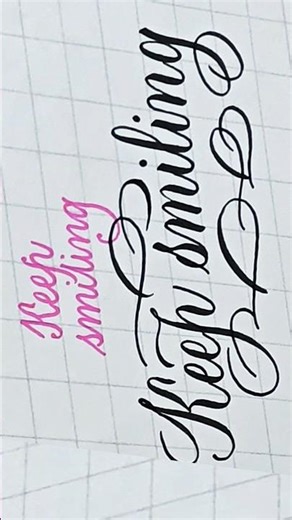 Keep
smiling
Keep smiling